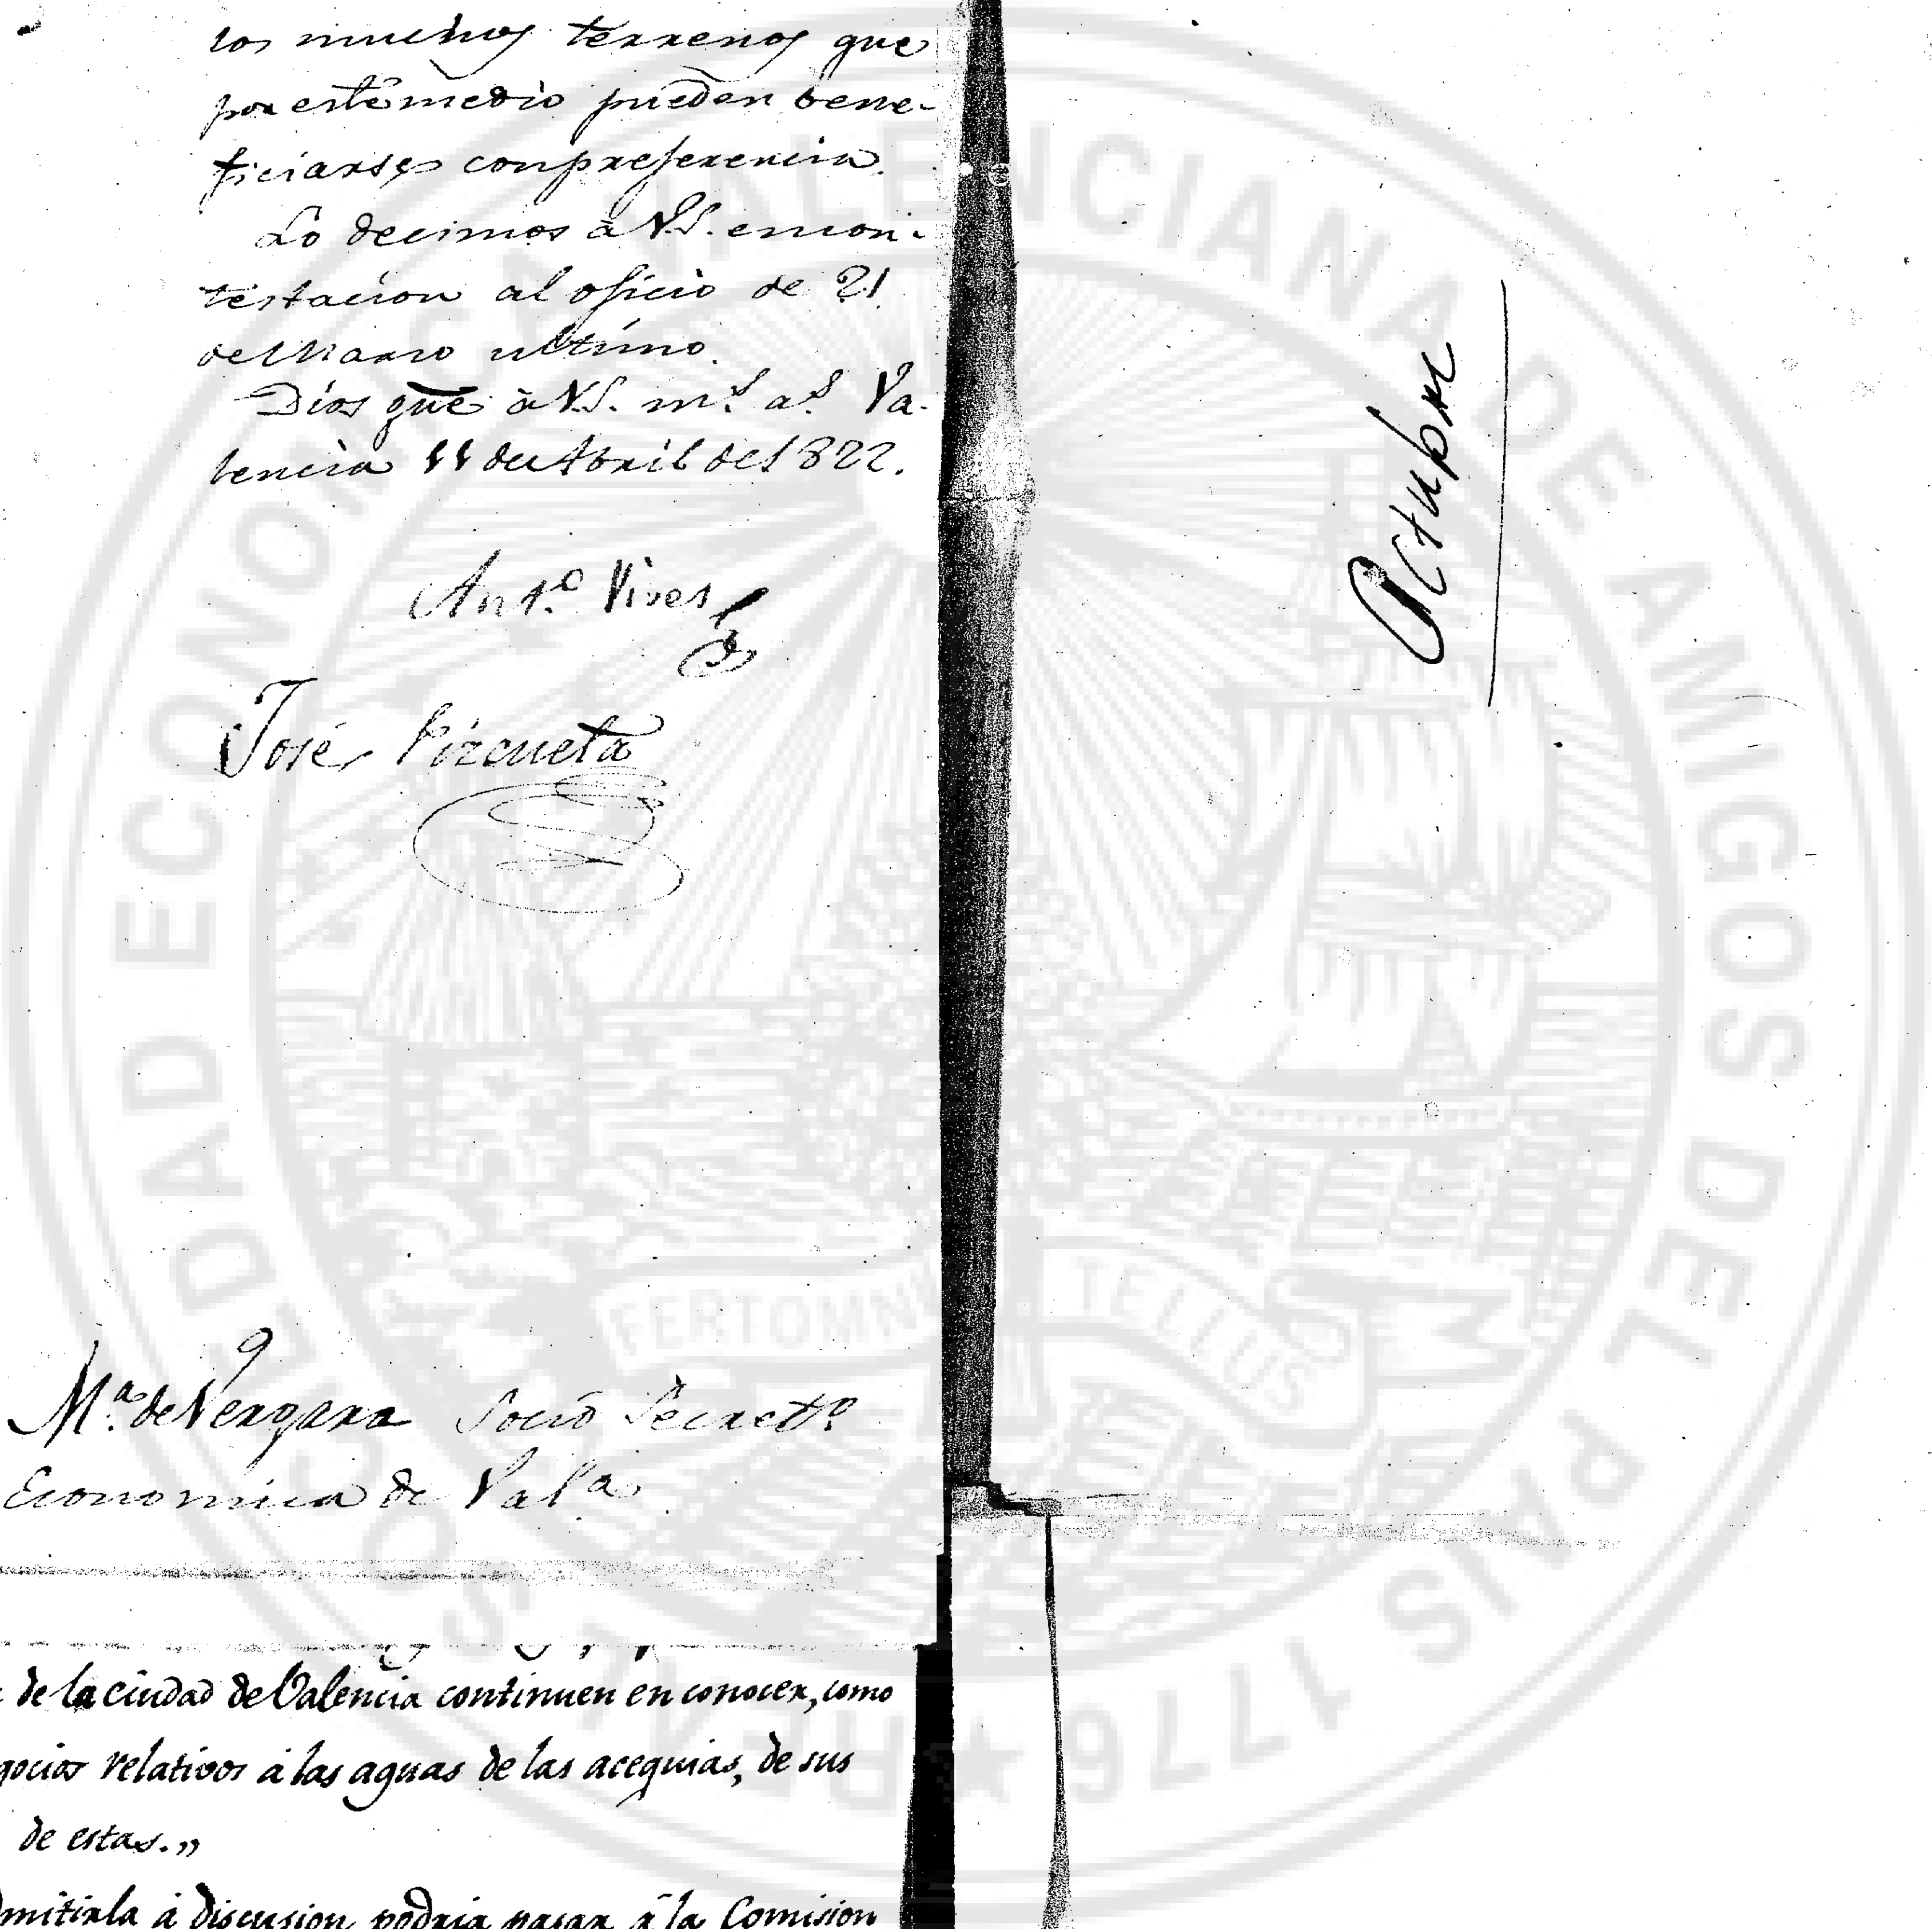 los muchos terrenos que
por este medio pueden bene-
ficiarse con preferencia.
Lo decimos à V.S. en con-
testacion al oficio de 21
de Marzo ultimo.
Dios gue à V.S. ms. as. Va-
lencia 11 de Abril de 1822.
Anto. Vives
José Pizcueta
Ma. de Vergara Socio Secreto.
Economica de Vala.
de la ciudad de Valencia continuen en conocer, como
gocios relativos á las aguas de las acequias, de sus
de estas."
mitirla á discusion podria pasar á la Comision
Octubre
REAL SOCIEDAD ECONOMICA VALENCIANA DE AMIGOS DEL PAIS 1776